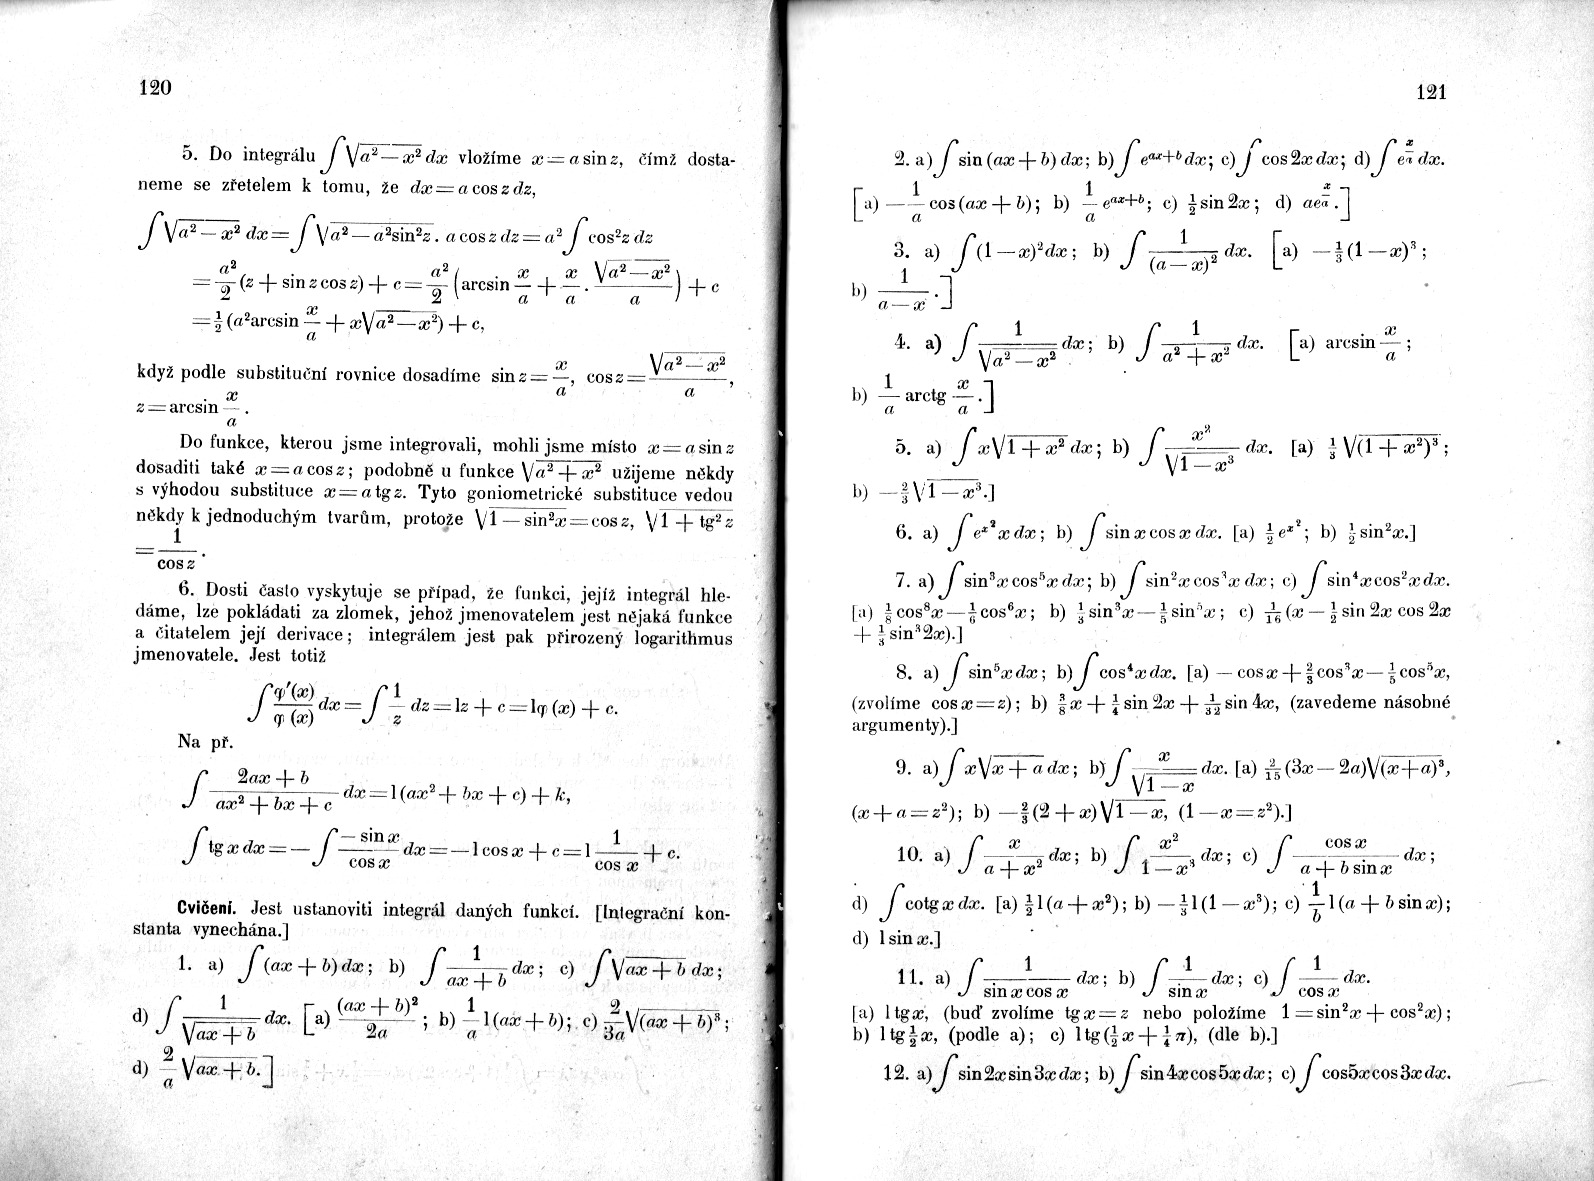 120
5. Do integrálu ∫√(a² — x²) dx vložíme x = a sin z, čímž dosta-
neme se zřetelem k tomu, že dx = a cos z dz,
∫√(a² — x²) dx = ∫√(a² — a²sin²z) . a cos z dz = a² ∫ cos²z dz
= a²/2 (z + sin z cos z) + c = a²/2 (arcsin x/a + x/a . √(a² — x²)/a) + c
= ½ (a²arcsin x/a + x√(a² — x²)) + c,
když podle substituční rovnice dosadíme sin z = x/a, cos z = √(a² — x²)/a,
z = arcsin x/a .
Do funkce, kterou jsme integrovali, mohli jsme místo x = a sin z
dosaditi také x = a cos z; podobně u funkce √(a² + x²) užijeme někdy
s výhodou substituce x = a tg z. Tyto goniometrické substituce vedou
někdy k jednoduchým tvarům, protože √(1 — sin²x) = cos z, √(1 + tg² z)
= 1/cos z .
6. Dosti často vyskytuje se případ, že funkci, jejíž integrál hle-
dáme, lze pokládati za zlomek, jehož jmenovatelem jest nějaká funkce
a čitatelem její derivace; integrálem jest pak přirozený logarithmus
jmenovatele. Jest totiž
∫ φ′(x)/φ(x) dx = ∫ 1/z dz = lz + c = lφ(x) + c.
Na př.
∫ (2ax + b)/(ax² + bx + c) dx = l(ax² + bx + c) + k,
∫ tg x dx = — ∫ (— sin x)/(cos x) dx = — l cos x + c = l 1/cos x + c.
Cvičení. Jest ustanoviti integrál daných funkcí. [Integrační kon-
stanta vynechána.]
1. a) ∫(ax + b) dx; b) ∫ 1/(ax + b) dx; c) ∫√(ax + b) dx;
d) ∫ 1/√(ax + b) dx. [a) (ax + b)²/2a ; b) 1/a l(ax + b); c) 2/3a √(ax + b)³;
d) 2/a √(ax + b).]
121
2. a) ∫ sin (ax + b) dx; b) ∫ e^(ax+b) dx; c) ∫ cos 2x dx; d) ∫ e^(x/a) dx.
[a) — 1/a cos (ax + b); b) 1/a e^(ax+b); c) ½ sin 2x; d) ae^(x/a) .]
3. a) ∫(1 — x)²dx; b) ∫ 1/(a — x)² dx. [a) — ⅓ (1 — x)³;
b) 1/(a — x) .]
4. a) ∫ 1/√(a² — x²) dx; b) ∫ 1/(a² + x²) dx. [a) arcsin x/a ;
b) 1/a arctg x/a .]
5. a) ∫ x√(1 + x²) dx; b) ∫ x²/√(1 — x³) dx. [a) ⅓ √(1 + x²)³;
b) — ⅔ √(1 — x³).]
6. a) ∫ e^(x²) x dx; b) ∫ sin x cos x dx. [a) ½ e^(x²); b) ½ sin²x.]
7. a) ∫ sin³x cos⁵x dx; b) ∫ sin²x cos³x dx; c) ∫ sin⁴x cos²x dx.
[a) ⅛ cos⁸x — ⅙ cos⁶x; b) ⅓ sin³x — ⅕ sin⁵x; c) 1/16 (x — ½ sin 2x cos 2x
+ ⅓ sin³ 2x).]
8. a) ∫ sin⁵x dx; b) ∫ cos⁴x dx. [a) — cos x + ⅔ cos³x — ⅕ cos⁵x,
(zvolíme cos x = z); b) ⅜ x + ¼ sin 2x + 1/32 sin 4x, (zavedeme násobné
argumenty).]
9. a) ∫ x√(x + a) dx; b) ∫ x/√(1 — x) dx. [a) 2/15 (3x — 2a)√(x + a)³,
(x + a = z²); b) — ⅔ (2 + x)√(1 — x), (1 — x = z²).]
10. a) ∫ x/(a + x²) dx; b) ∫ x²/(1 — x³) dx; c) ∫ cos x/(a + b sin x) dx;
d) ∫ cotg x dx. [a) ½ l(a + x²); b) — ⅓ l(1 — x³); c) 1/b l(a + b sin x);
d) l sin x.]
11. a) ∫ 1/(sin x cos x) dx; b) ∫ 1/sin x dx; c) ∫ 1/cos x dx.
[a) l tg x, (buď zvolíme tg x = z nebo položíme 1 = sin²x + cos²x);
b) l tg ½ x, (podle a); c) l tg (½ x + ¼ π), (dle b).]
12. a) ∫ sin 2x sin 3x dx; b) ∫ sin 4x cos 5x dx; c) ∫ cos 5x cos 3x dx.